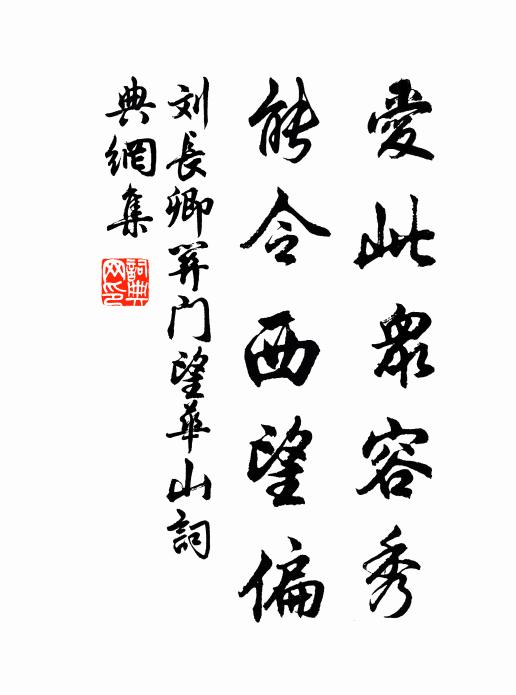 愛此衆容秀
能令西望偏
刘長卿関門望華山詞
典網集
詞典
网印